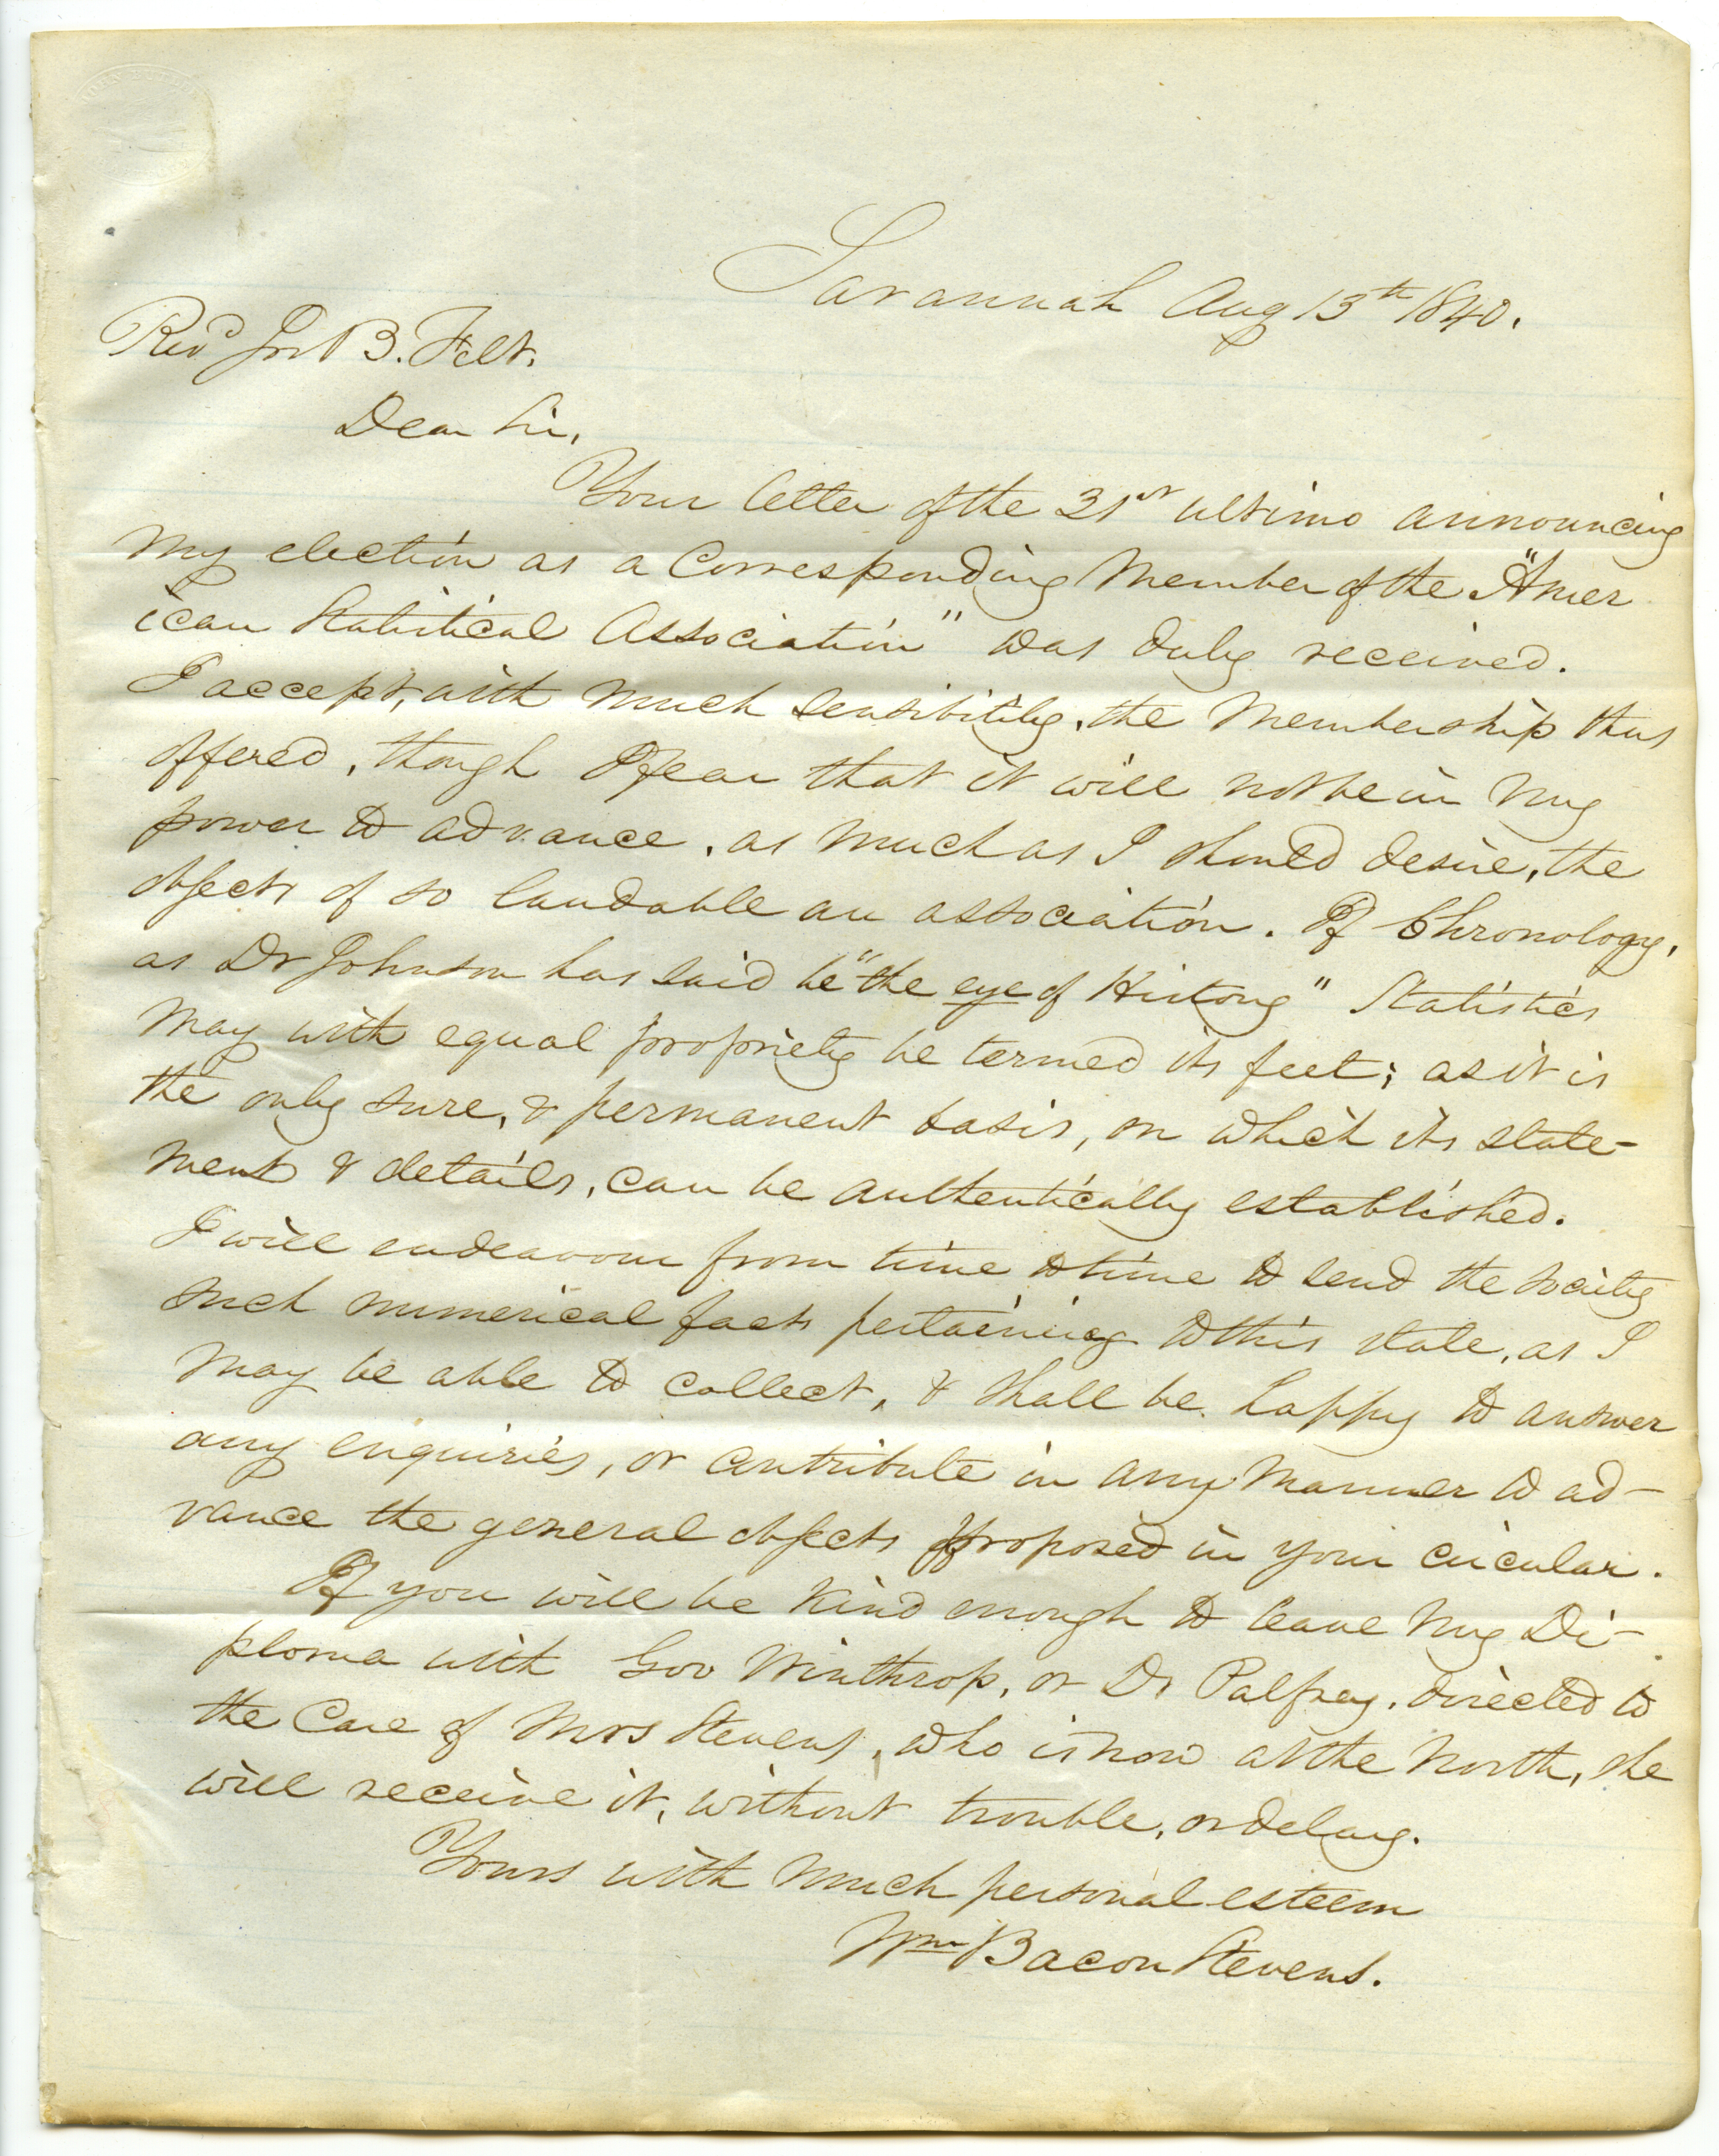 Savannah Aug 13th 1840.
Revd Jos B. Felt.
Dear Sir,
Your letter of the 31st ultimo announcing
my election as a Corresponding Member of the "Amer
ican Statistical Association" was duly received.
I accept, with much sensibility, the Membership thus
offered, though I fear that it will not be in my
power to advance, as much as I should desire, the
objects of so laudable an association. If Chronology,
as Dr Johnson has said be "the eye of History" Statistics
may with equal propriety be termed its feet; as it is
the only sure, & permanent basis, on which its state-
ments & details, can be authentically established.
I will endeavour from time to time to send the society
such numerical facts pertaining to this state, as I
may be able to collect, & shall be happy to answer
any enquiries, or contribute in any manner to ad-
vance the general objects proposed in your circular.
If you will be kind enough to leave my Di-
ploma with Gov Winthrop, or Dr Palfrey, directed to
the Care of Mrs Stevens, who is now at the North, she
will receive it, without trouble, or delay.
Yours with much personal esteem
Wm Bacon Stevens.